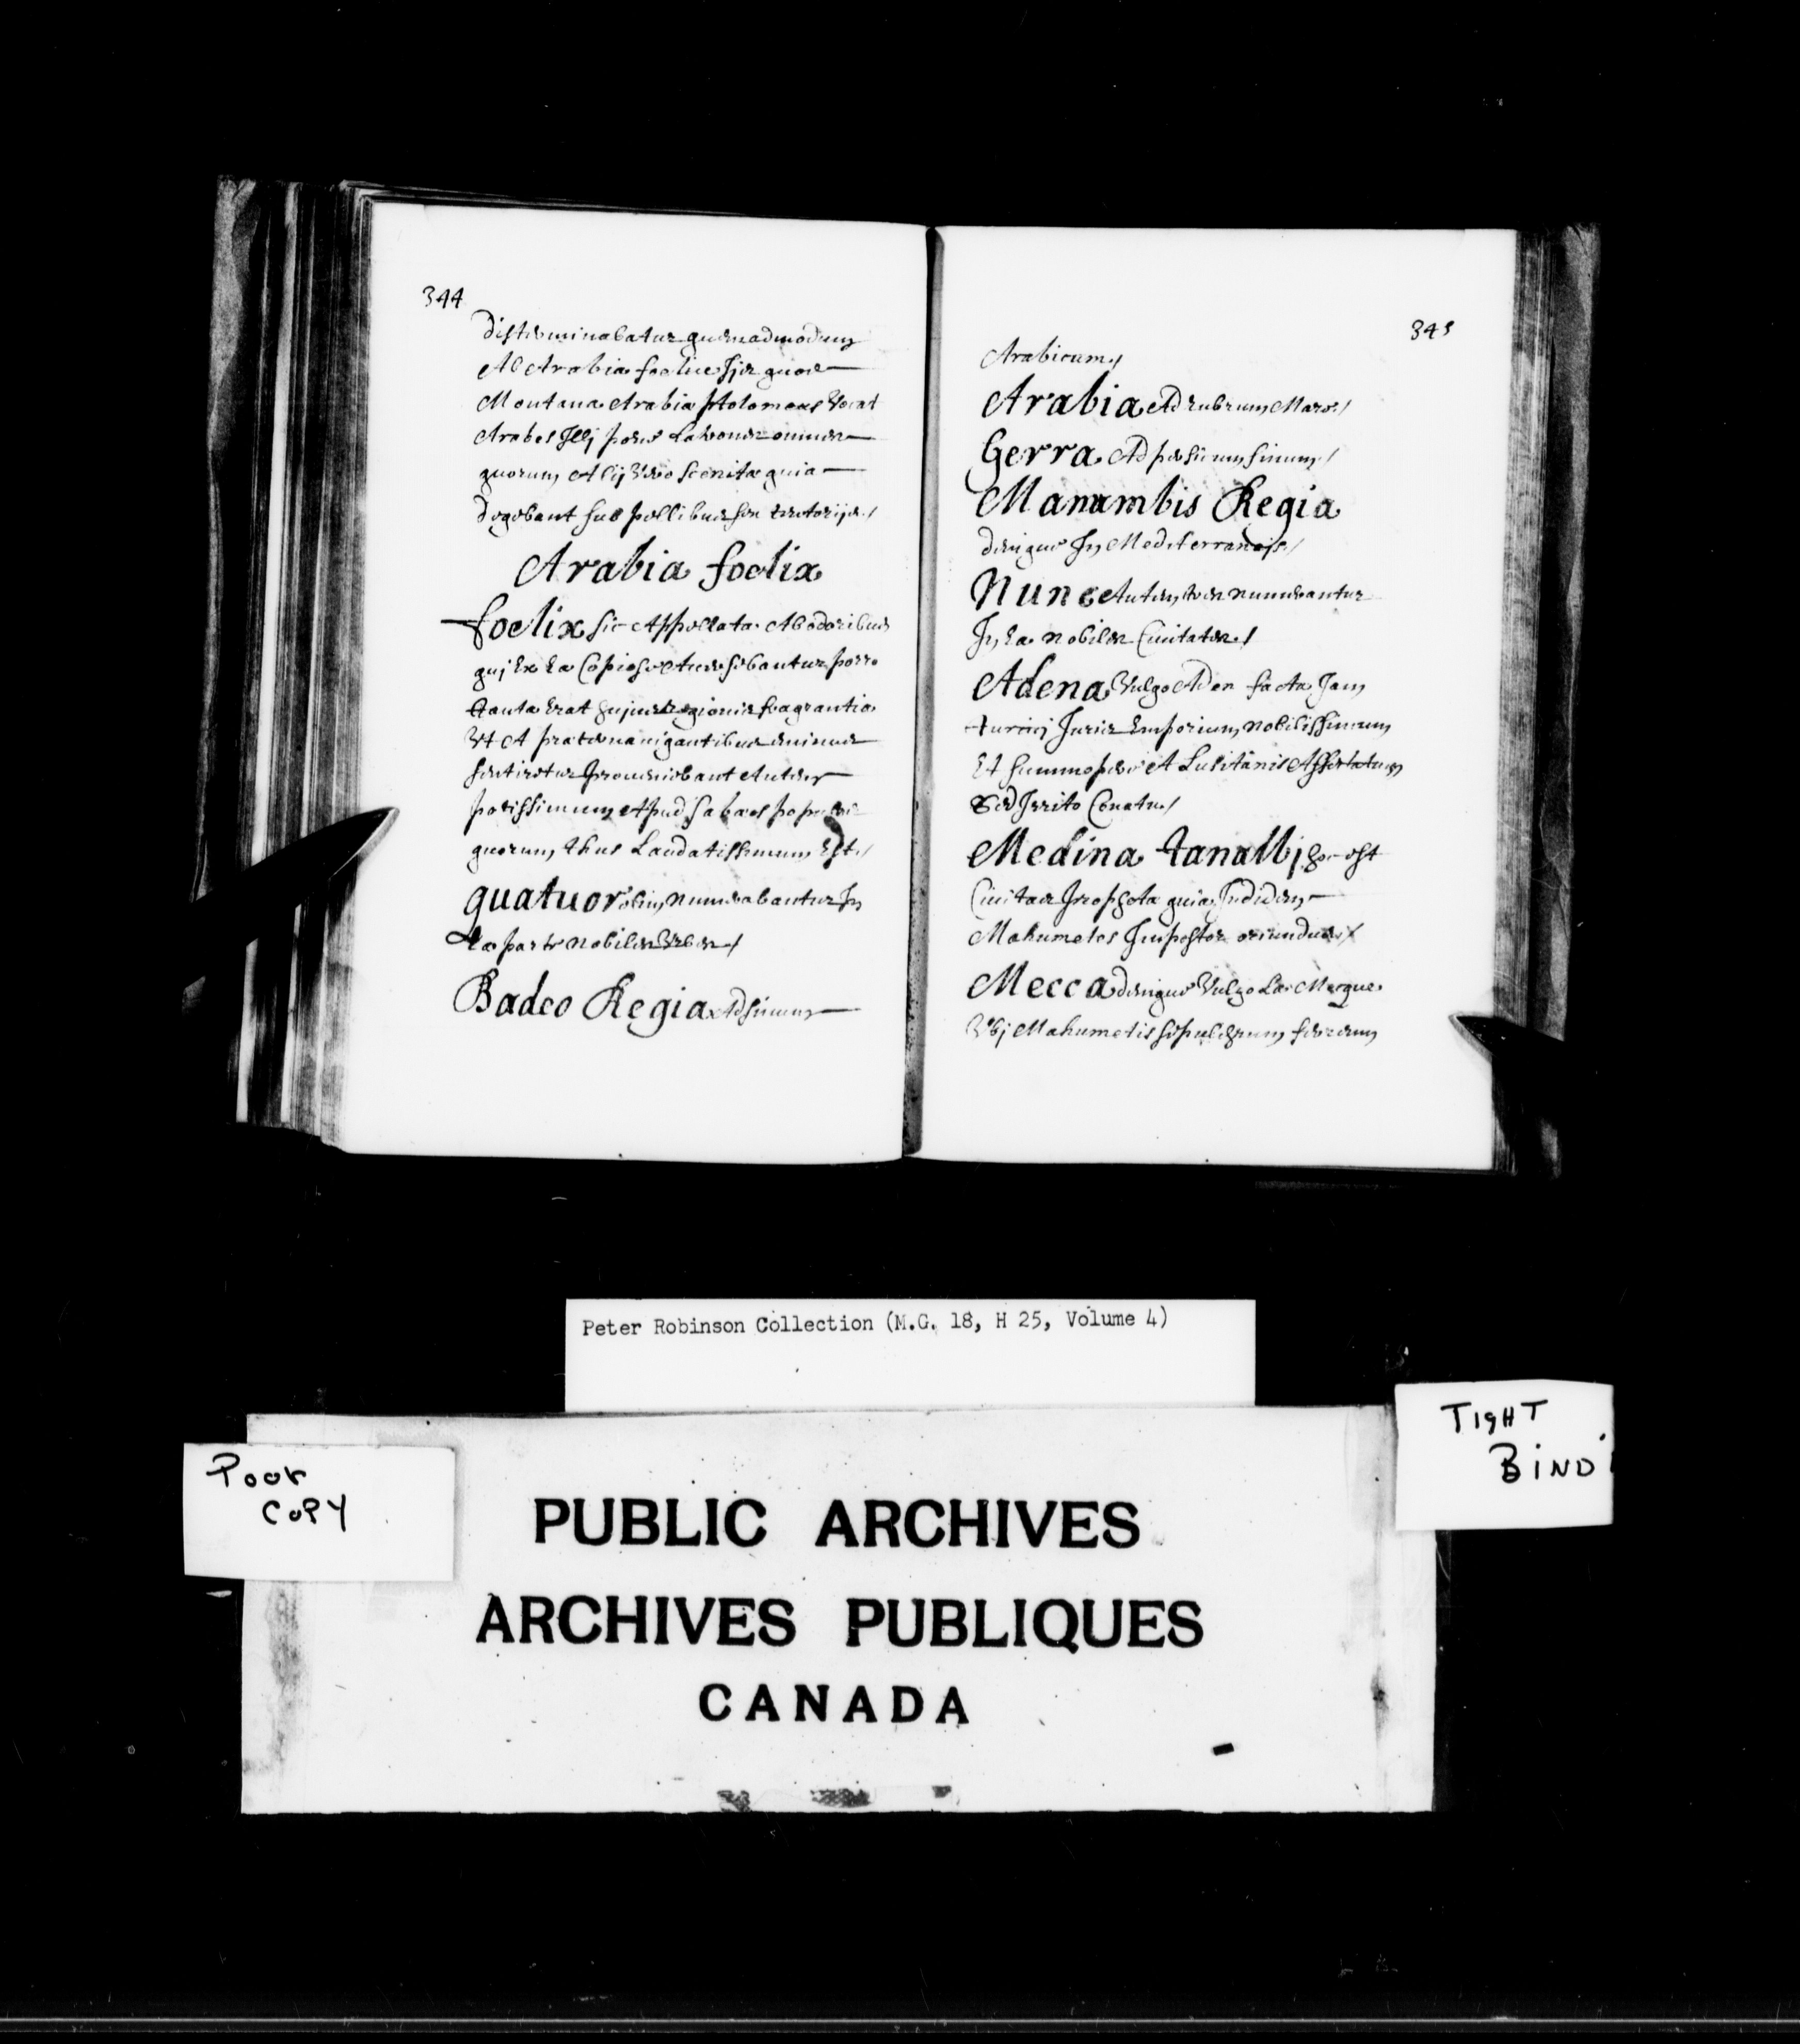 344
disterminabatur quemadmodum
Ab Arabia foelice Ijs quos
Montana Arabiæ ptolomæus Vocat
Arabes Illj pene Latrones omnes
quorum Alij Vero scenitæ quia
degebant sub pellibus seu tentorijs./
Arabia foelix
foelix sic Appellata Ab odoribus
quj Ex Ea Copiose Auehebantur porro
tanta Erat hujus regionis fragrantia
Vt A præternauigantibus eminus
sentiretur proueniebant Autem
potissimum Apud sabæos populos
quorum thus Laudatissimum Est./
quatuor olim numerabantur In
Ea parte nobiles Vrbes./
Badeo Regia Ad sinum
345
Arabicum./
Arabia Ad rubrum Mare./
Gerra Ad persicum sinum./
Manambis Regia
denique In Mediterraneis./
Nunc Autem tres numerantur
In Ea nobiles Ciuitates./
Adena Vulgo Aden facta Jam
turcicj Juris Emporium nobilissimum
Et summopere A Lusitanis Affectatum
Sed Irrito Conatu./
Medina tanalbj hoc est
Ciuitas prophetæ quia Indidem
Mahumetes Impostor oriundus./
Mecca denique Vulgo La Mecque
Vbj Mahumetis sepulchrum ferreum
Peter Robinson Collection (M.G. 18, H 25, Volume 4)
TIGHT
BIND
Poor
COPY
PUBLIC ARCHIVES
ARCHIVES PUBLIQUES
CANADA